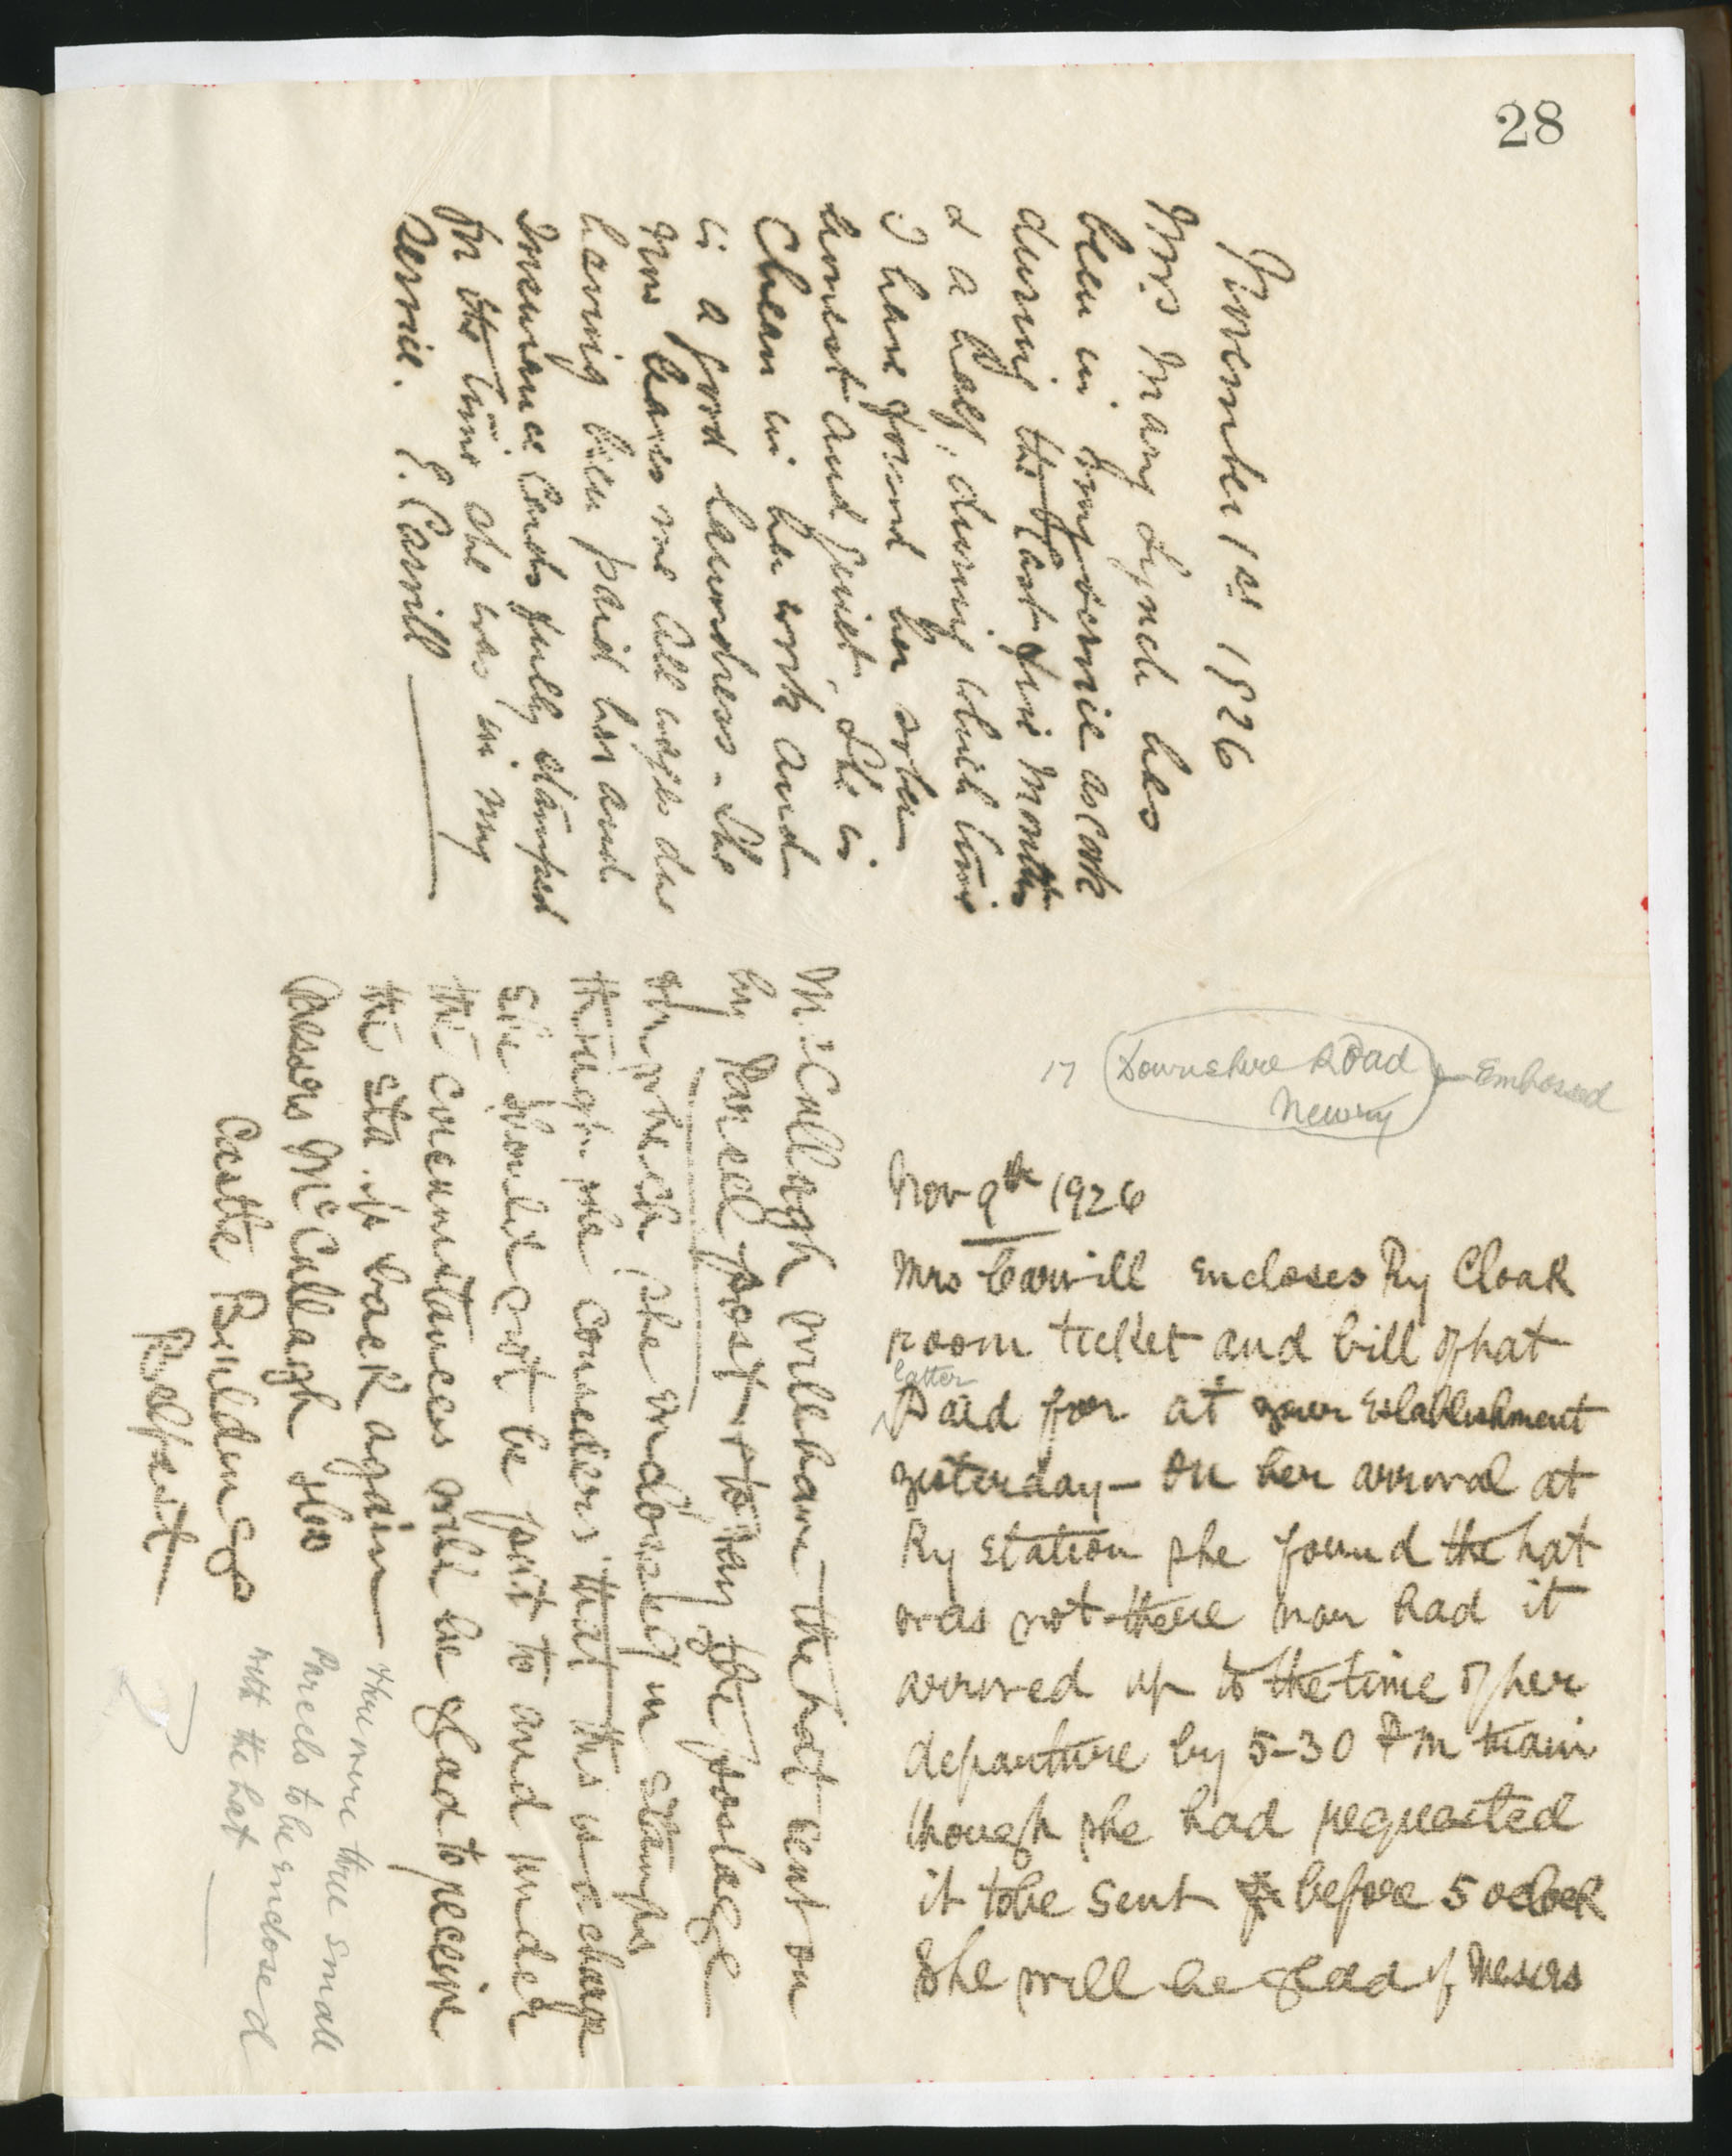 28
November 1st 1926
Mrs Mary Lynch has
been in my service as cook
during the last five months
& a half, during which time
I have found her sober
honest and quiet, she is
Clean in her work and
is a good laundress. She
now leaves me all wages due
having been paid her and
Insurance Cards fully stamped
for the time she was in my
Service. E. Carvill
17 Downshire Road Embossed
Newry
Nov 9th 1926
Mrs Carvill encloses Ry Cloak
room ticket and bill of hat
latter
Paid for at your Establishment
yesterday — On her arrival at
Ry station she found the hat
was not there nor had it
arrived up to the time of her
departure by 5-30 PM train
though she had requested
it to be sent before 5 oclock
She will be glad if Messrs
McCullagh will have the hat sent on
by Parcel post & to pay the postage
of which she encloses in stamps
though she considers that this is a charge
she should not be put to and under
the circumstances will be glad to receive
the sta ps back again
Messrs McCullagh
Castle Buildings
Belfast
There were three small
Parcels to be enclosed
with the hat